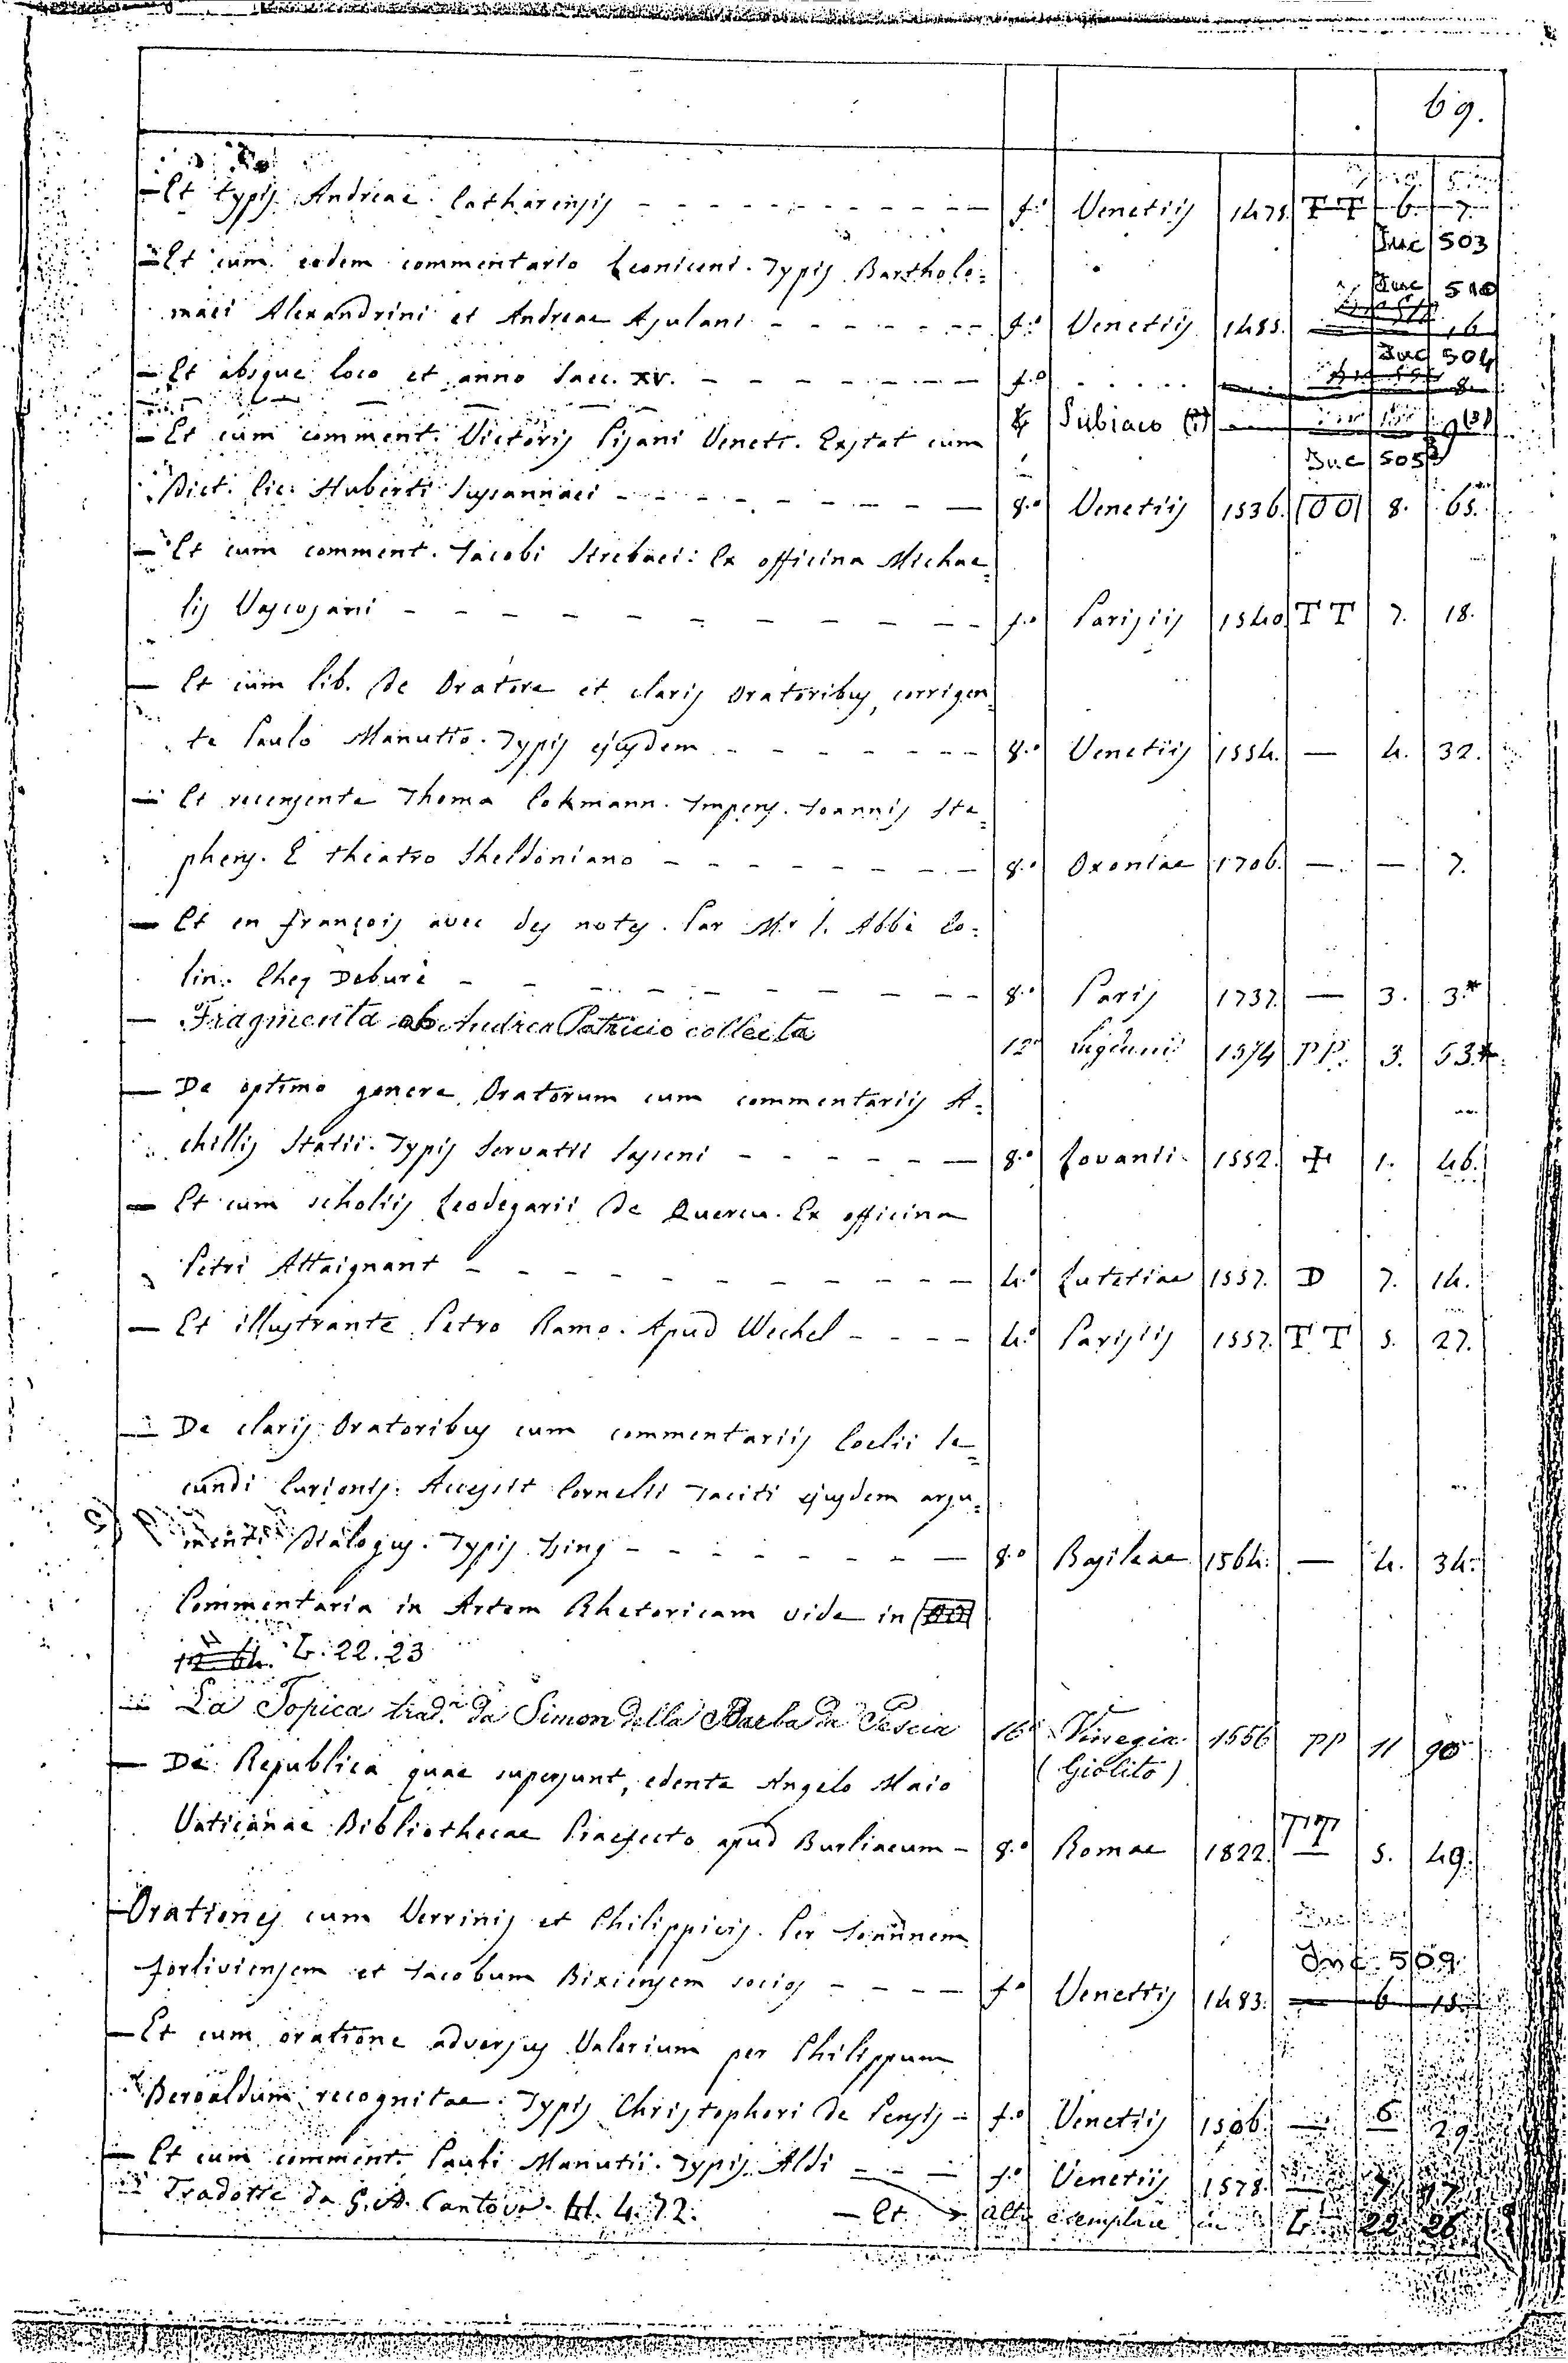 69.
— Et typis Andreae Catharensis — f.º Venetiis 1478. TT 6. 7.
Inc 503
— Et cum eodem commentario Leoniceni. Typis Bartholo=
Inc 510
maei Alexandrini et Andreae Asulani — f.º Venetiis 1485. — 16
Inc 504
— Et absque loco et anno saec. XV. — f.º . . . . . — 8.
Subiaco (?) — 9
— Et cum comment. Victoris Pisani Venet. Exstat cum
Inc 505
Dict. lic. Huberti Susannaei — 8.º Venetiis 1536. OO 8. 65.
— Et cum comment. Jacobi Strebaei: Ex officina Michae=
lis Vascosani — f.º Parisiis 1540. TT 7. 18.
— Et cum lib. De Oratore et claris Oratoribus, corrigen=
te Paulo Manutio. Typis ejusdem — 8.º Venetiis 1554. — 4. 32.
— Et recensente Thoma Cokmann. Impens. Joannis Ste=
phens. E theatro Sheldoniano — 8.º Oxoniae 1706. — — 7.
— Et en françois avec des notes. Par Mr. l. Abbè Co=
lin. Chez Deburè — 8.º Paris 1737. — 3. 3.*
— Fragmenta ab Andrea Patricio collecta 12º Lugduni 1574 PP. 3. 53*.
— De optimo genere Oratorum cum commentariis A=
chillis Statii. Typis Servatii Sasseni — 8.º Lovanii. 1552. + 1. 46.
— Et cum scholiis Leodegarii De Quercu. Ex officina
Petri Attaignant — 4.º Lutetiae 1557. D 7. 14.
— Et illustrante Petro Ramo. Apud Wechel — 4.º Parisiis 1557. TT 5. 27.
— De claris Oratoribus cum commentariis Coelii Se=
cundi Curionis. Accessit Cornelii Taciti ejusdem argu=
menti Dialogus. Typis Ising — 8.º Basileae 1564. — 4. 34.
Commentaria in Artem Rhetoricam vide in
12 64. L. 22. 23
— La Topica trad.ª da Simon della Barba da Pescia 16º Vinegia 1556 PP 11 90
(Giolito)
— De Republica quae supersunt, edente Angelo Maio
Vaticanae Bibliothecae Praefecto apud Burliaeum — 8.º Romae 1822. TT 5. 49.
— Orationes cum Verrinis et Philippicis. Per Joannem
Inc. 509.
forliviensem et Jacobum Bixiensem socios — f.º Venetiis 1483. — 6 15.
— Et cum oratione adversus Valerium per Philippum
Beroaldum recognitae. Typis Christophori De Pensis — f.º Venetiis 1506. — 6 29.
— Et cum comment. Pauli Manutii. Typis Aldi — f.º Venetiis 1578. — 7. 17.
Tradotte da G. A. Cantova. 4. 72. — Et altro esemplare in L 22 26